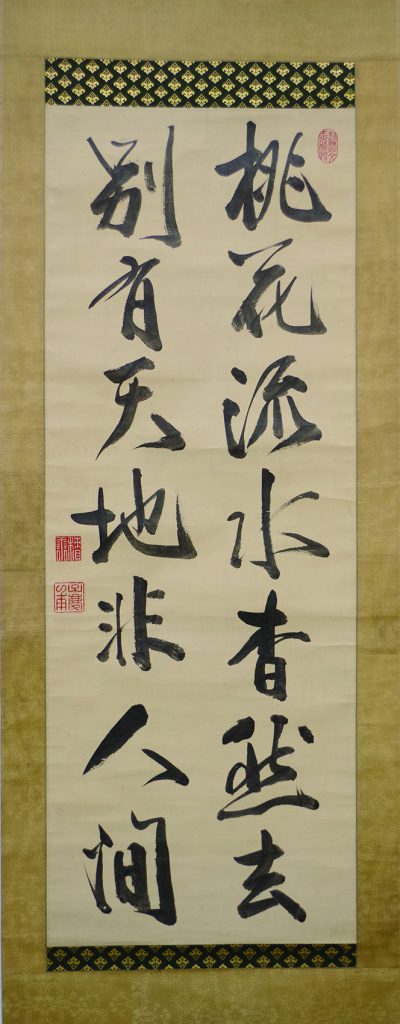 桃花流水杳然去
别有天地非人間